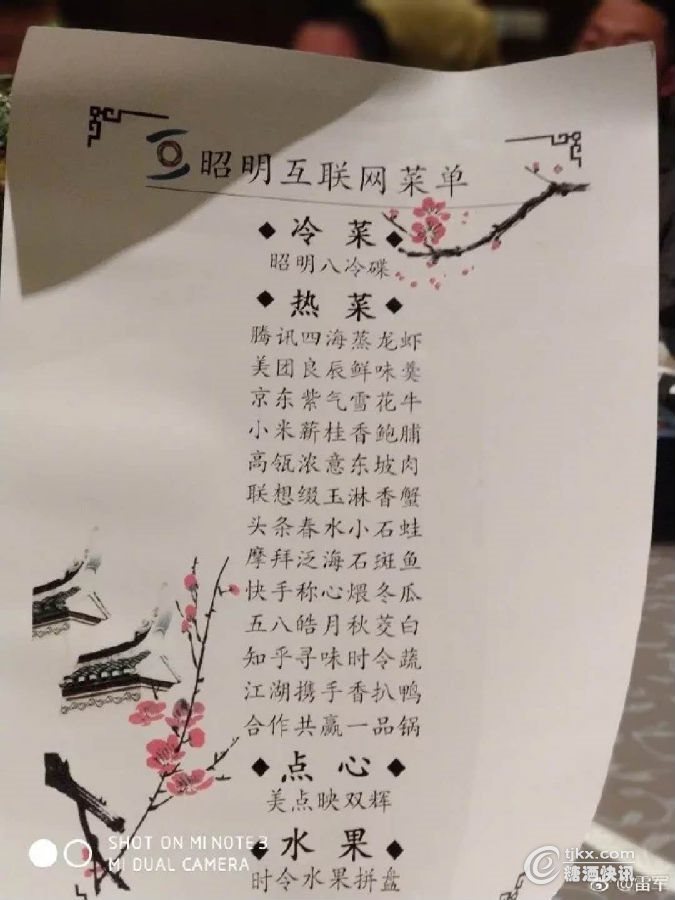 昭明互联网菜单
冷菜
昭明八冷碟
热菜
腾讯四海蒸龙虾
美团良辰鲜味羹
京东紫气雪花牛
小米薪桂香鲍脯
高瓴浓意东坡肉
联想缀玉淋香蟹
头条春水小石蛙
摩拜泛海石斑鱼
快手称心煨冬瓜
五八皓月秋茭白
知乎寻味时令蔬
江湖携手香扒鸭
合作共赢一品锅
点心
美点映双辉
水果
时令水果拼盘
SHOT ON MI NOTE 3
MI DUAL CAMERA
tjkx.com
糖酒快讯
@雷军